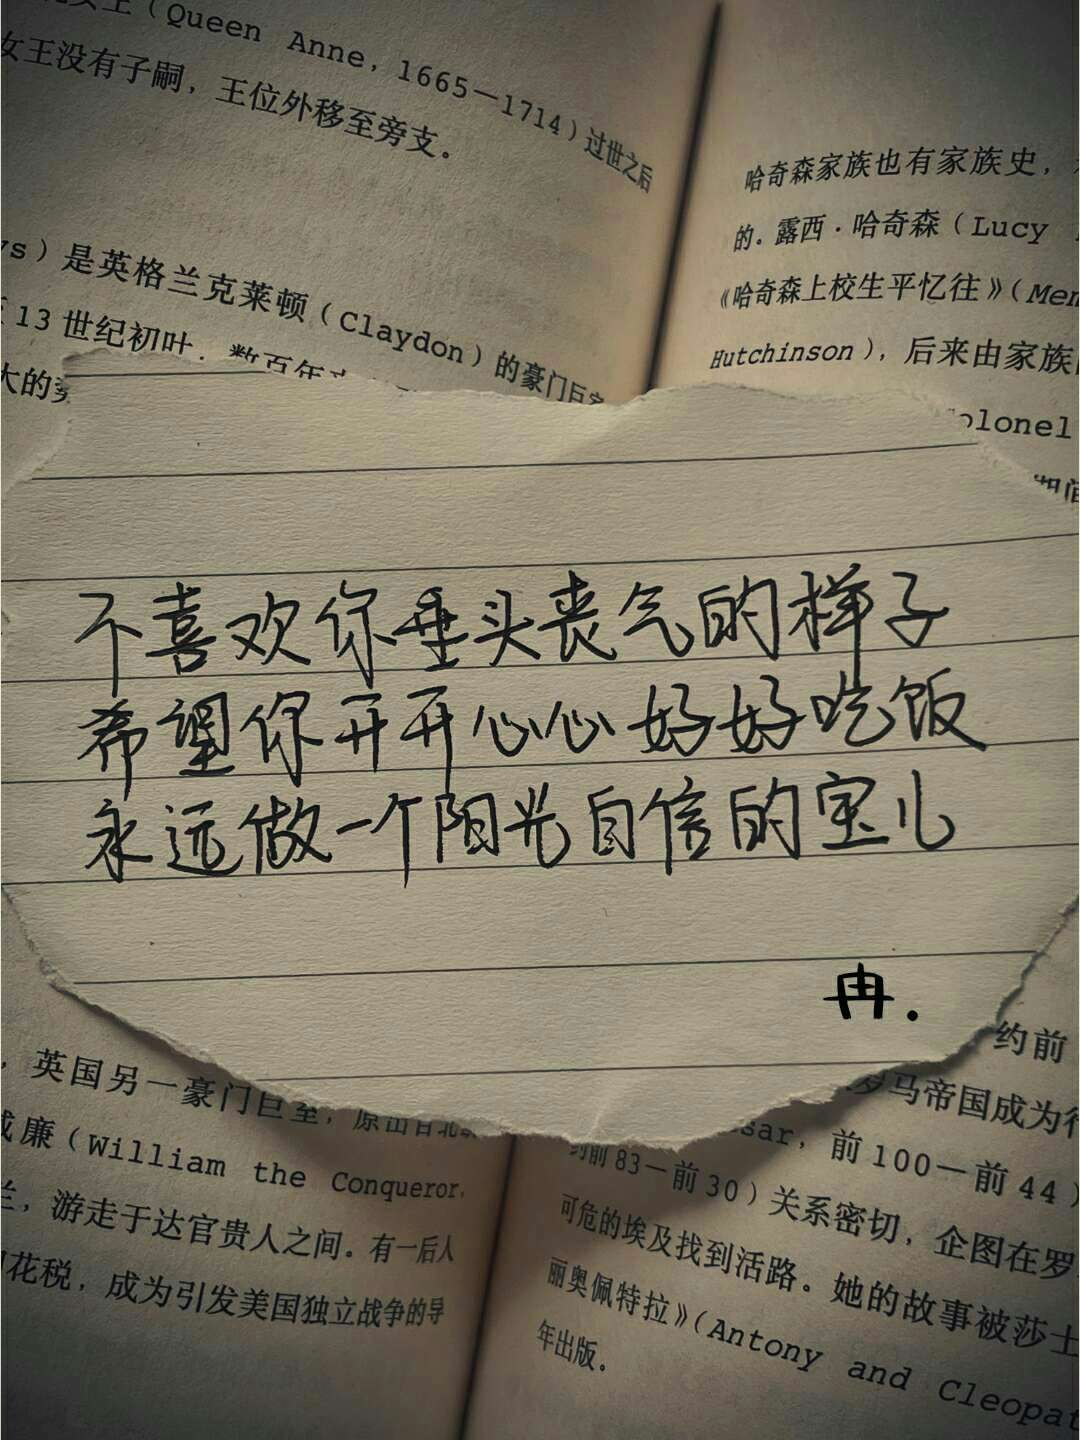 女王（Queen Anne，1665—1714）过世之后
女王没有子嗣，王位外移至旁支。
是英格兰克莱顿（Claydon）的豪门巨室
13世纪初叶，数百年
大的
哈奇森家族也有家族史，
的。露西·哈奇森（Lucy
《哈奇森上校生平忆往》（
Hutchinson），后来由家族
olonel
期间
不喜欢你垂头丧气的样子
希望你开开心心好好吃饭
永远做一个阳光自信的宝儿
冉.
，英国另一豪门巨室，原出
威廉（William the Conqueror，
兰，游走于达官贵人之间。有一后人
花税，成为引发美国独立战争的导
约前
罗马帝国成为行
sar，前100—前44）
约前83—前30）关系密切，企图在罗
可危的埃及找到活路。她的故事被莎士
丽奥佩特拉》（Antony and Cleopat
年出版。